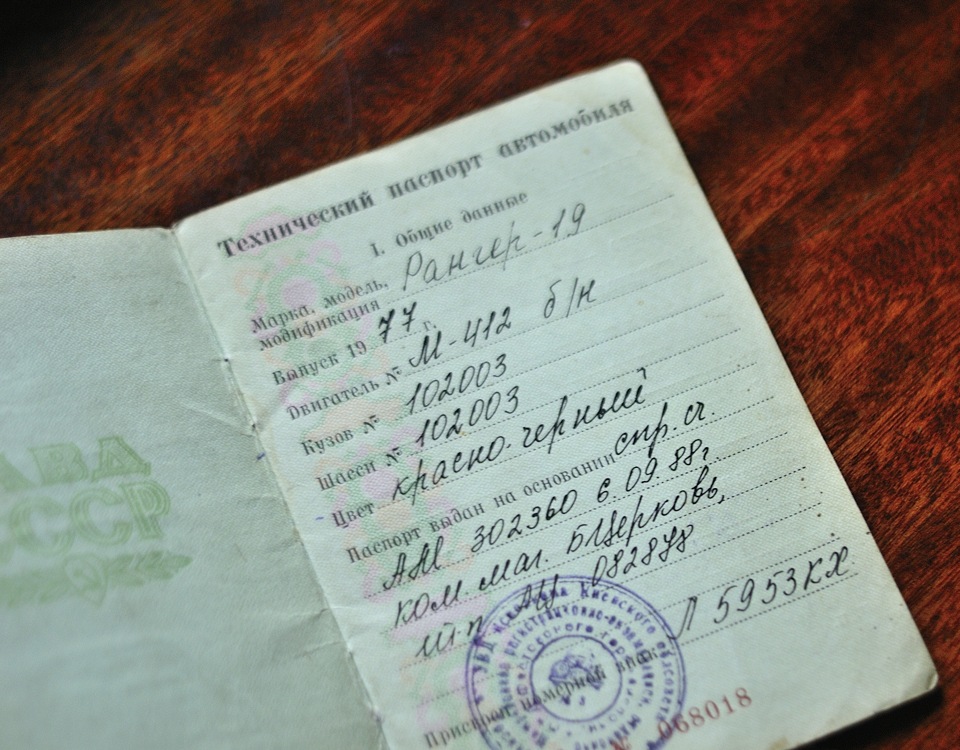 АВА
СССР
Технический паспорт автомобиля
1. Общие данные
Марка, модель, Рангер-19
модификация
Выпуск 19 77 г.
Двигатель № М-412 б/н
Кузов № 102003
Шасси № 102003
Цвет красно-черный
Паспорт выдан на основании спр. сч.
АМ 302360 6.09.88г.
ком. маг. Б Церковь,
АЦ 082878
Присвоен номерной знак Л 5953 КХ
№ 068018